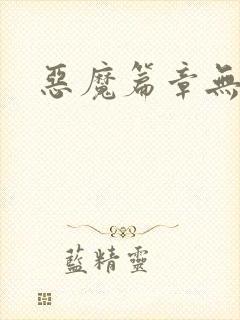 惡魔篇章無
藍精靈